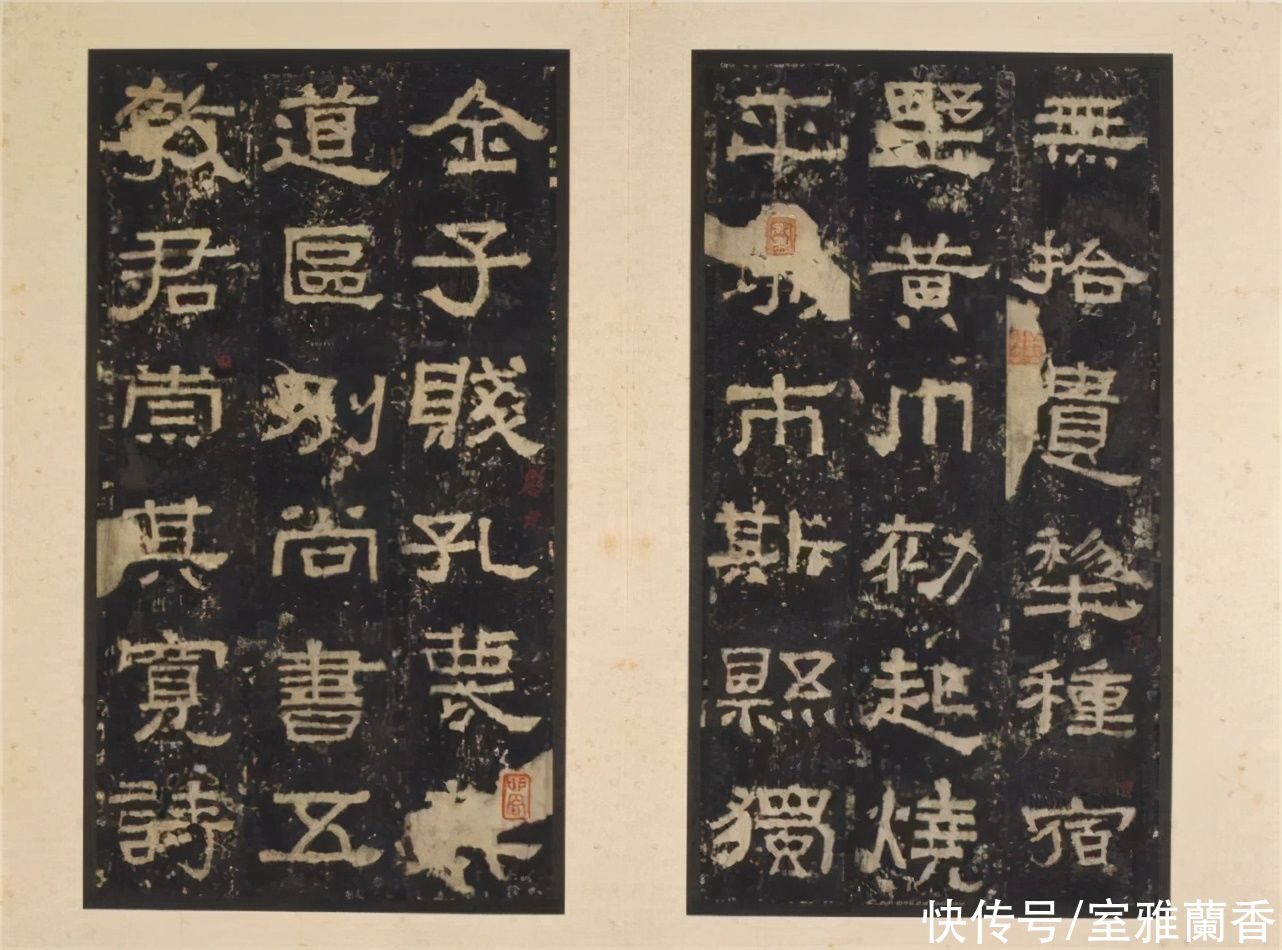 無拾遺犂種宿
野黃巾初起燒
平市斯縣獨
全子賤孔蔑
道區別尚書五
教君崇其寬詩
快传号/室雅蘭香